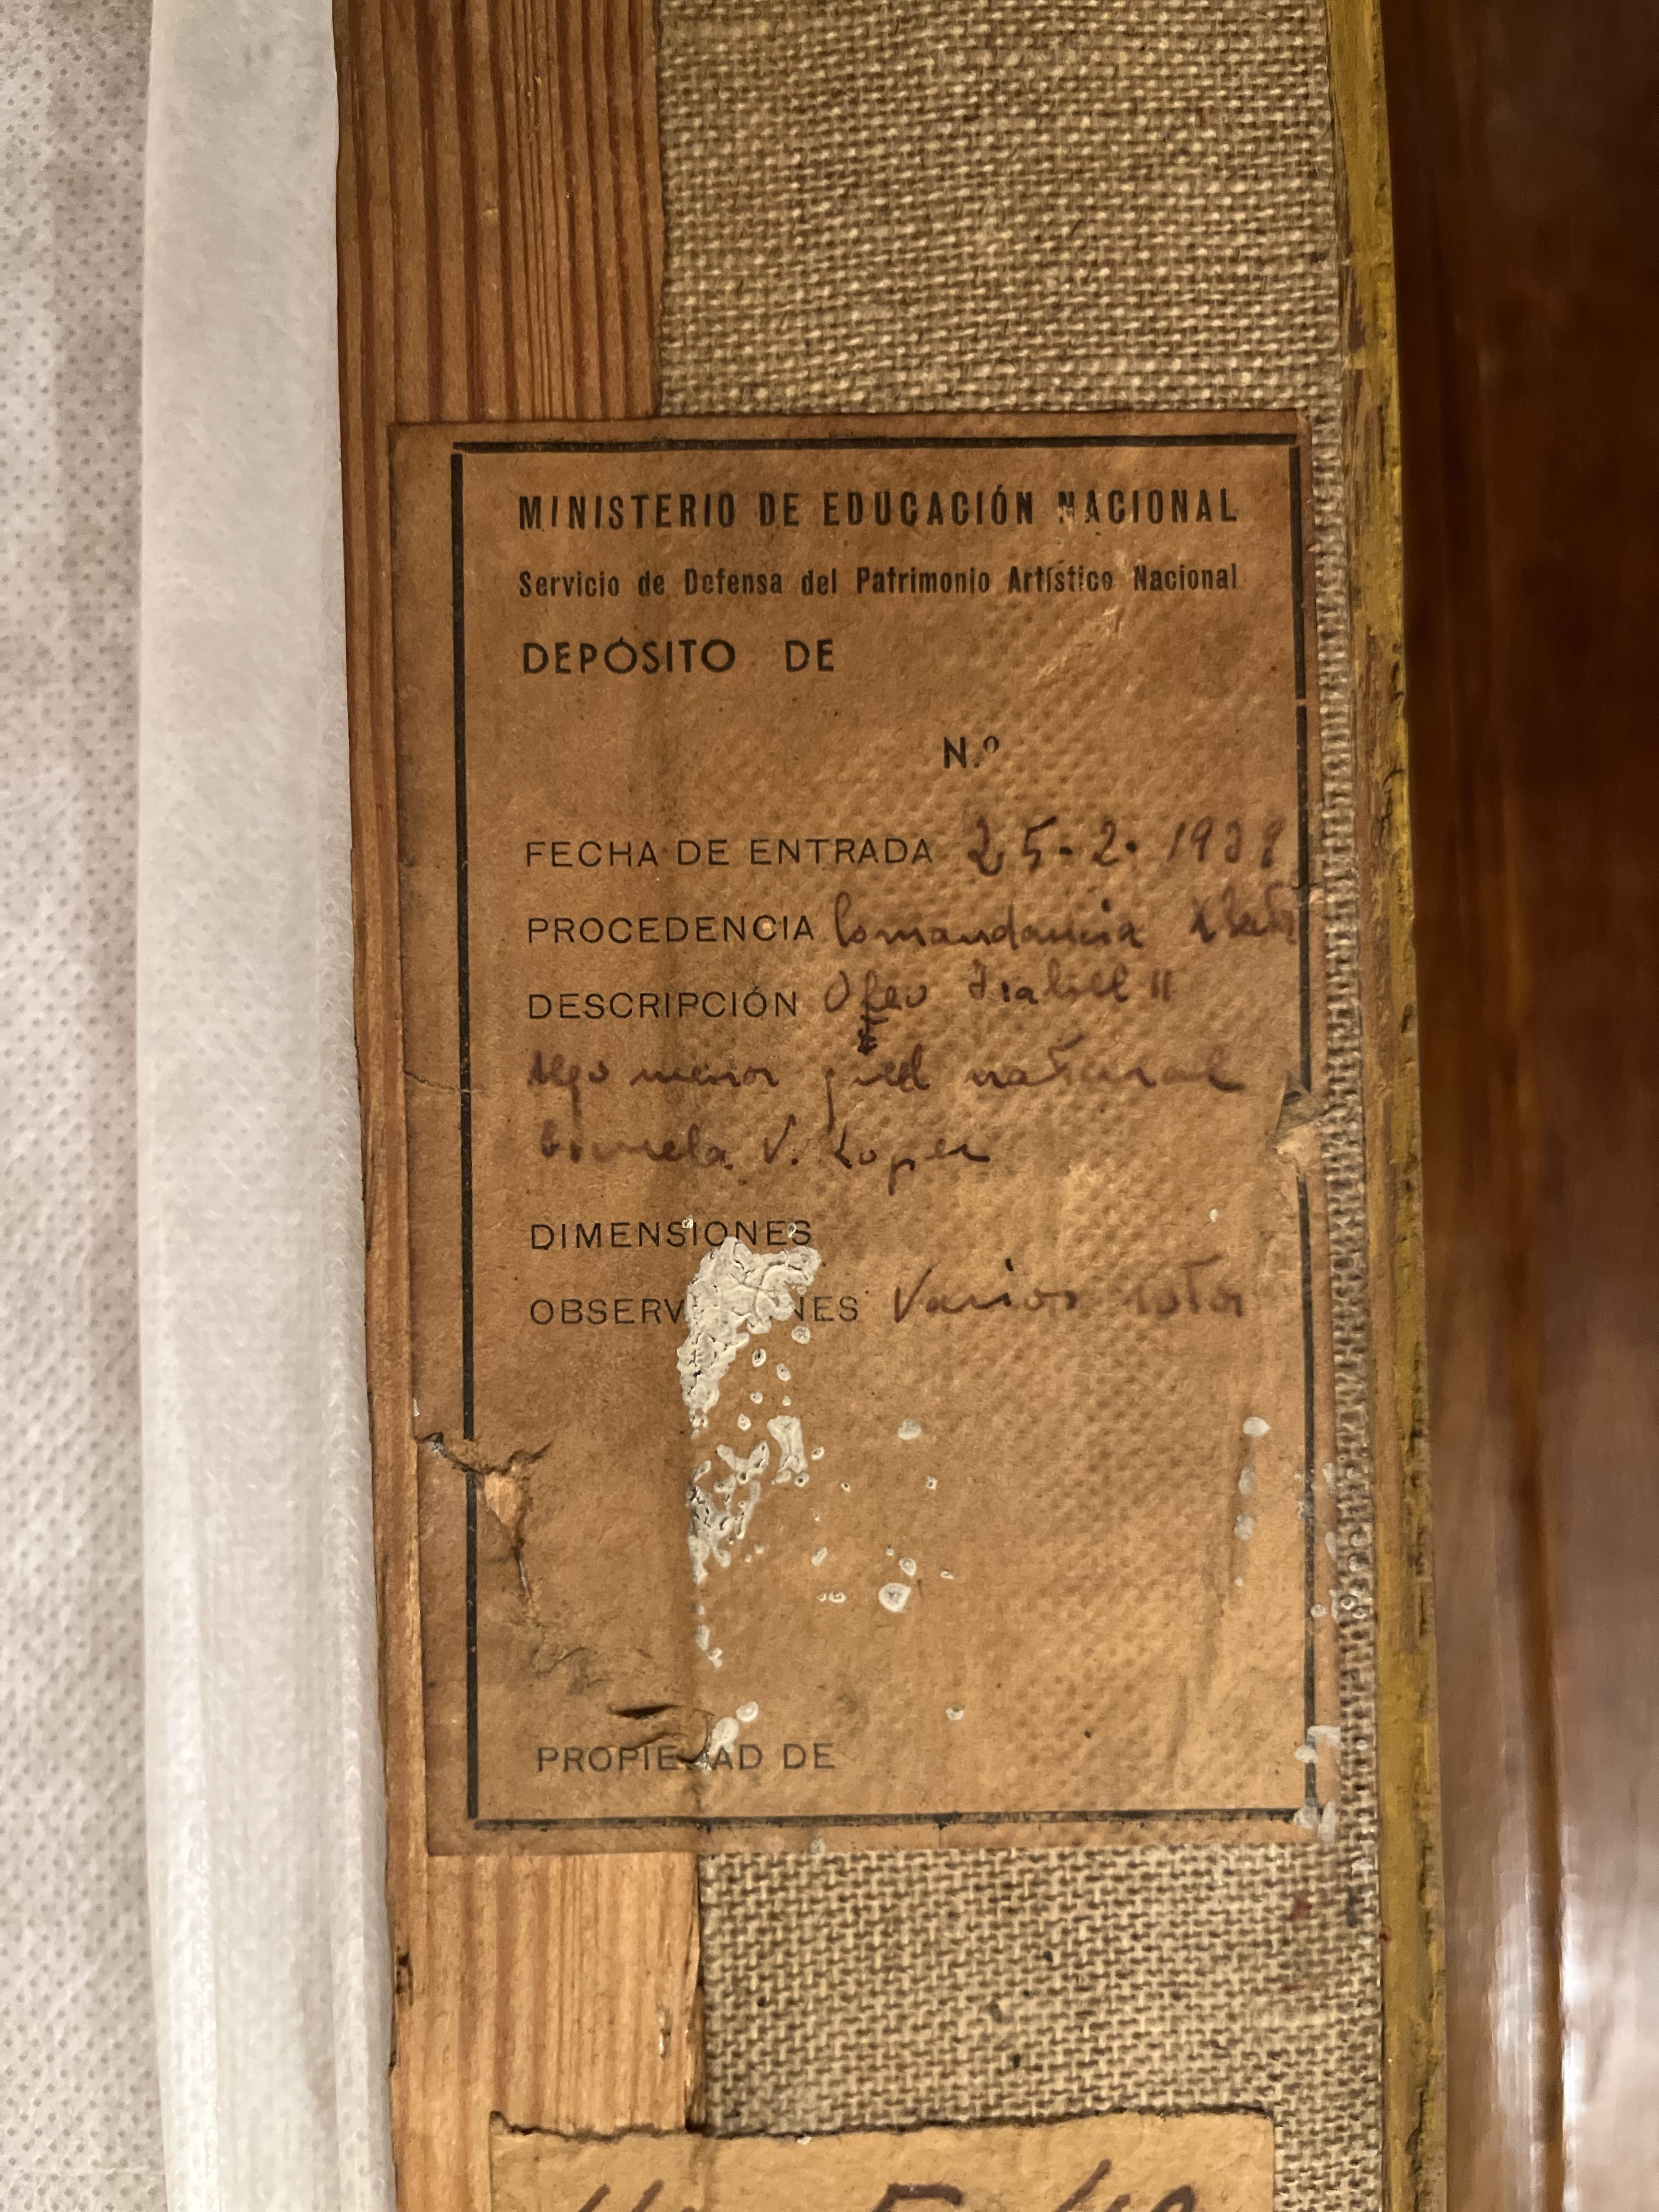 MINISTERIO DE EDUCACIÓN NACIONAL
Servicio de Defensa del Patrimonio Artístico Nacional
DEPÓSITO DE
N.º
FECHA DE ENTRADA 25-2-1939
PROCEDENCIA Comandancia
DESCRIPCIÓN Oleo Isabel II
Algo menor q. el natural
Escuela V. Lopez
DIMENSIONES
OBSERV NES Varios rotos
PROPIE AD DE